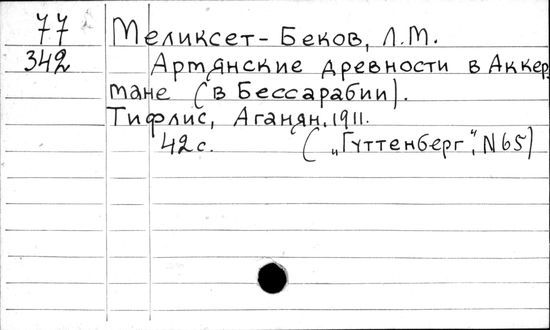 77 Меликсет-Беков, Л.М.
342 Армянские древности в Аккер-
мане (в Бессарабии).
Тифлис, Аганян, 1911.
42 с. („Гуттенберг“, N 65)